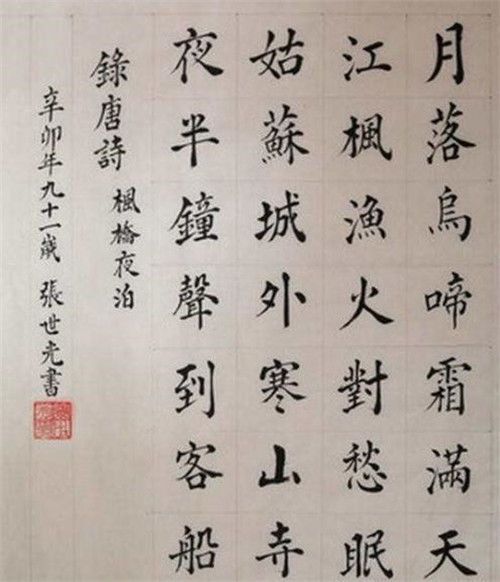 月落烏啼霜滿天
江楓漁火對愁眠
姑蘇城外寒山寺
夜半鐘聲到客船
錄唐詩 楓橋夜泊
辛卯年九十一歲 張世光書